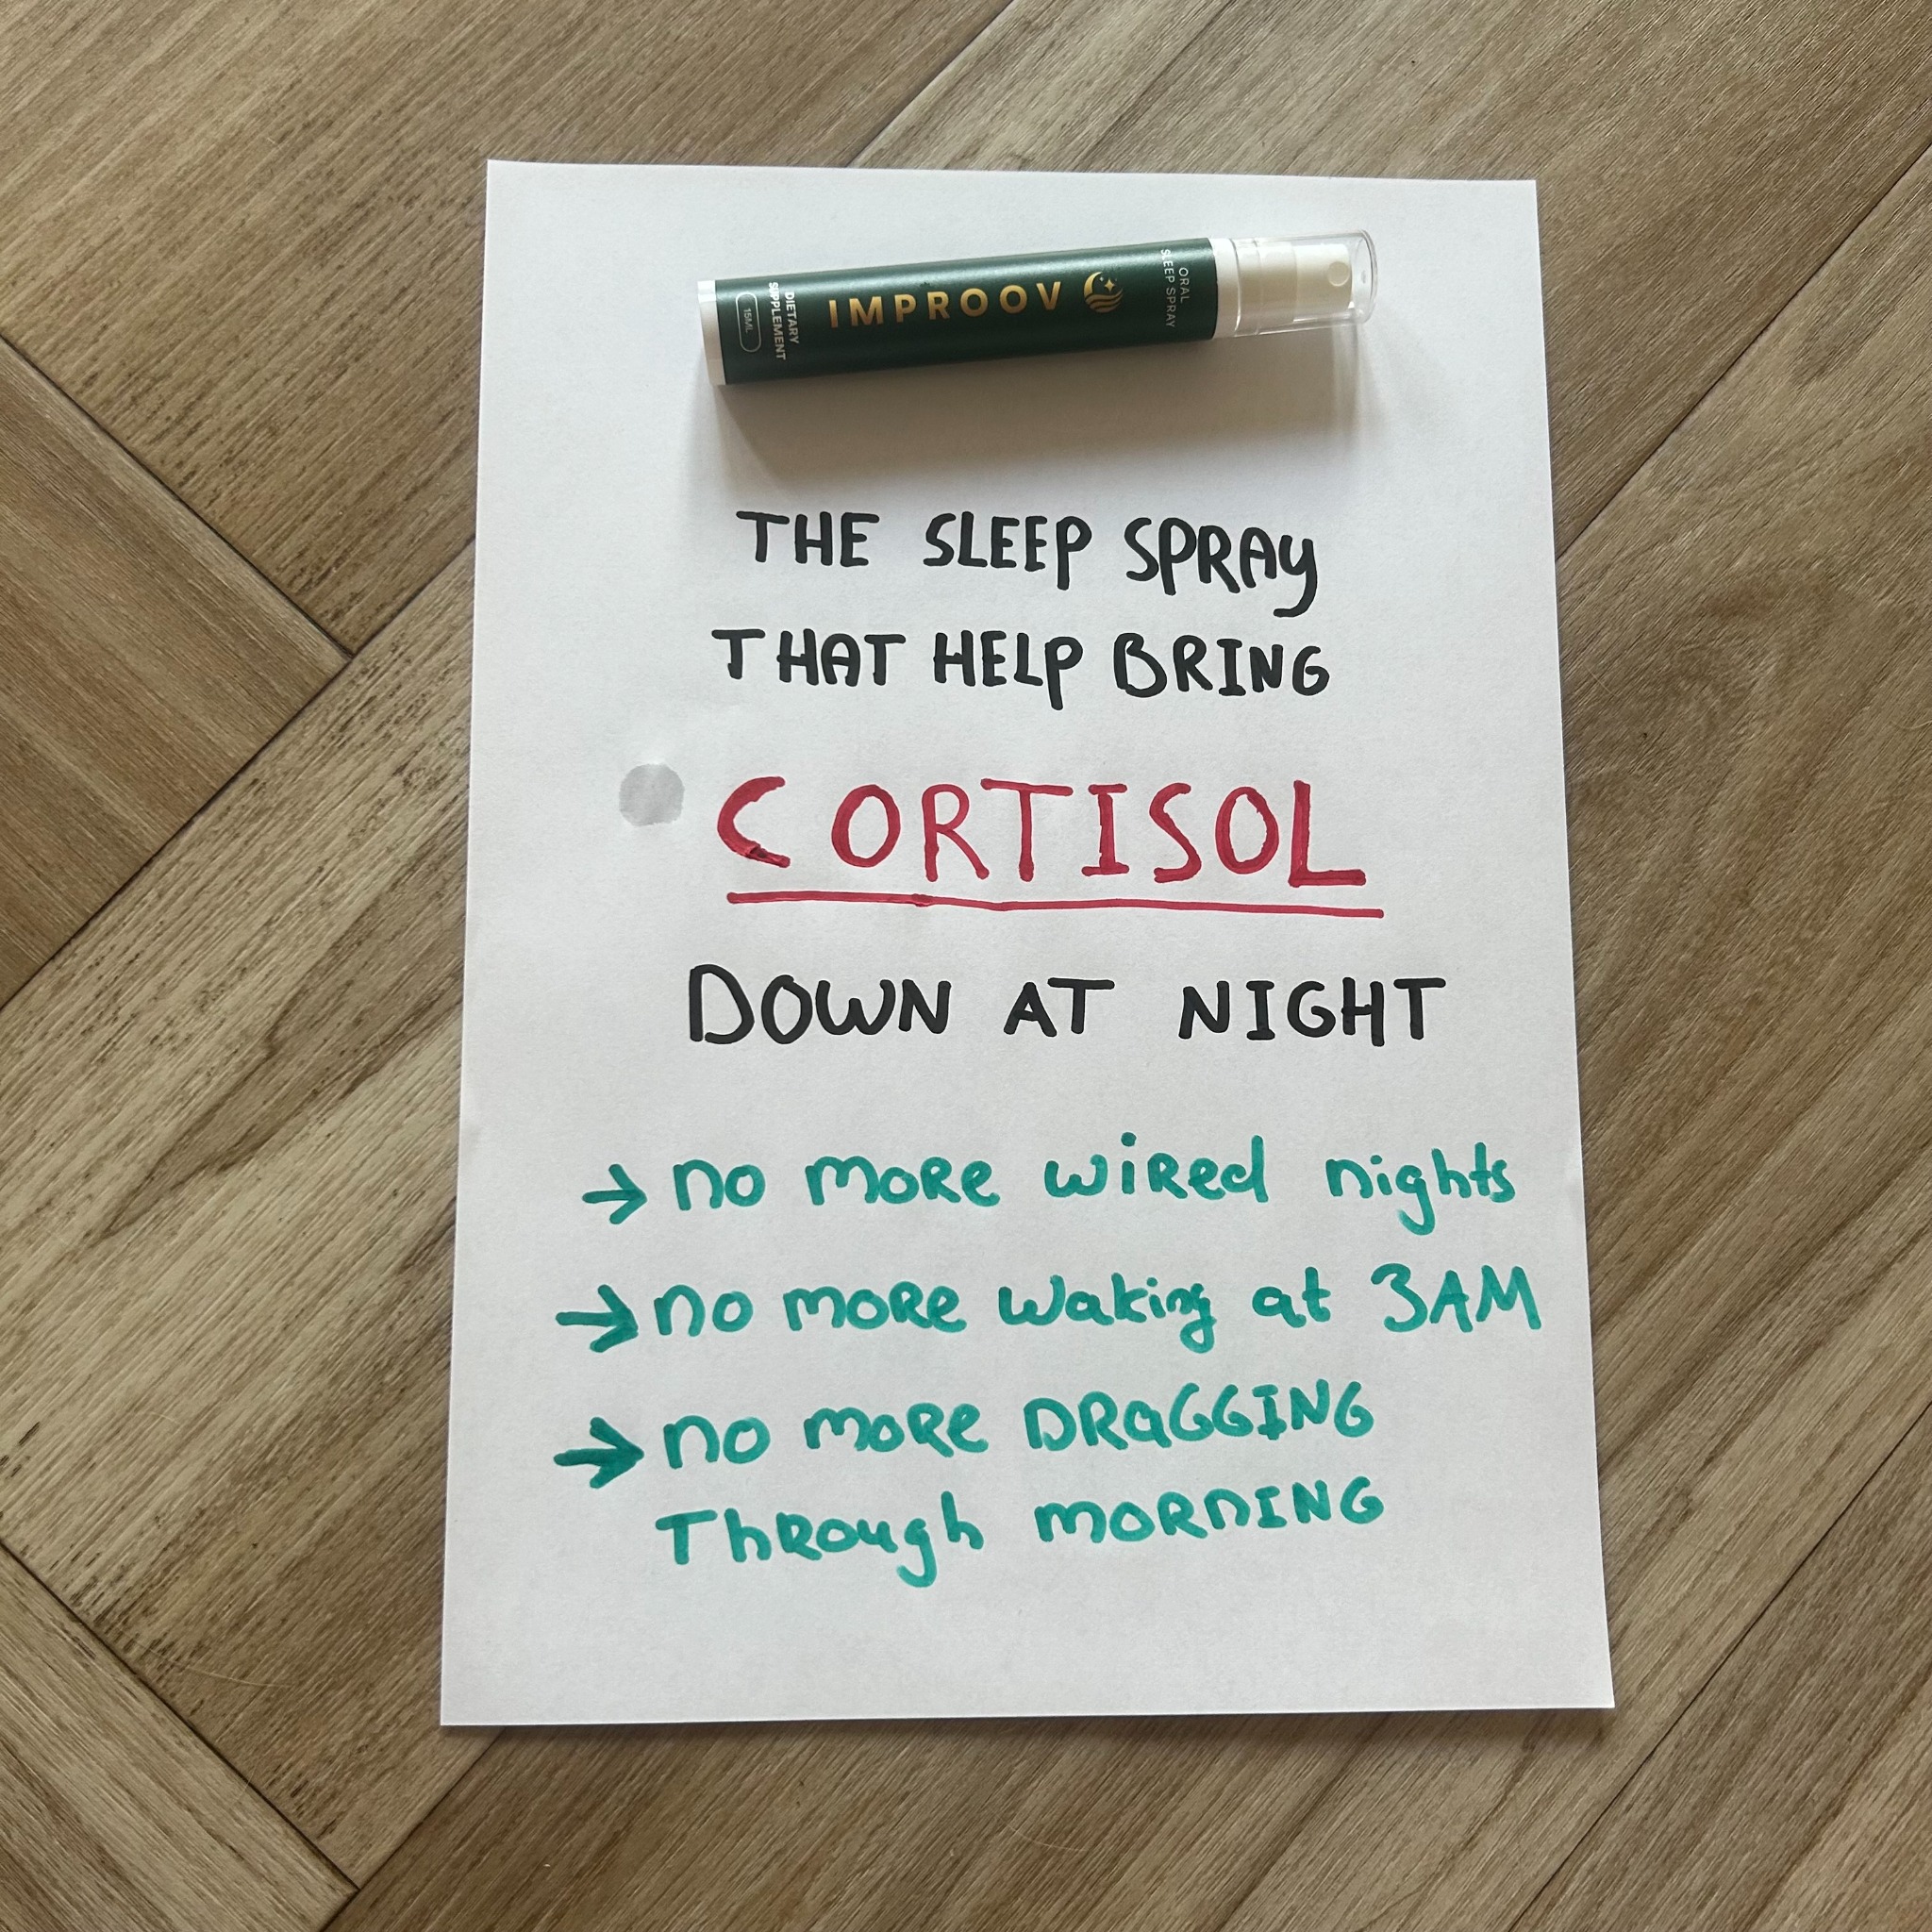 ORAL
SLEEP SPRAY
IMPROOV
DIETARY
SUPPLEMENT
15ML
THE SLEEP SPRAY
THAT HELP BRING
CORTISOL
DOWN AT NIGHT
→ no moRe wiRed nights
→ no moRe waking at 3AM
→ no moRe DRaGGING
ThRough moRnING